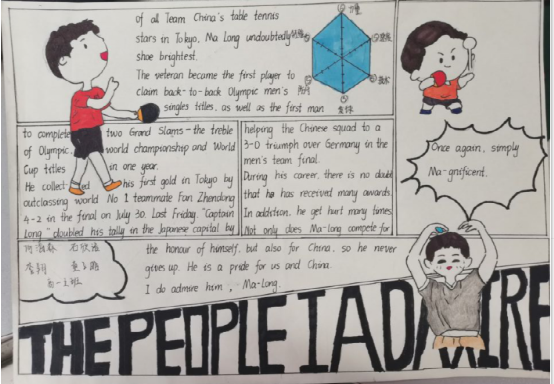 of all Team China's table tennis
stars in Tokyo, Ma Long undoubtedly
shoe brightest.
The veteran became the first player to
claim back-to-back Olympic men's
singles titles, as well as the first man
to complete two Grand Slams - the treble
of Olympic, world championship and World
Cup titles in one year.
He collected his first gold in Tokyo by
outclassing world No 1 teammate Fan Zhendong
4-2 in the final on July 30 Last Friday, "Captain
Long" doubled his tally in the Japanese capital by
helping the Chinese squad to a
3-0 triumph over Germany in the
men's team final.
During his career, there is no doubt
that he has received many awards.
In addition, he get hurt many times
Not only does Ma-long compete for
the honour of himself, but also for China, so he never
gives up. He is a pride for us and China.
I do admire him, - Ma-Long.
Once again, simply
Ma-gnificent.
THE PEOPLE I ADMIRE